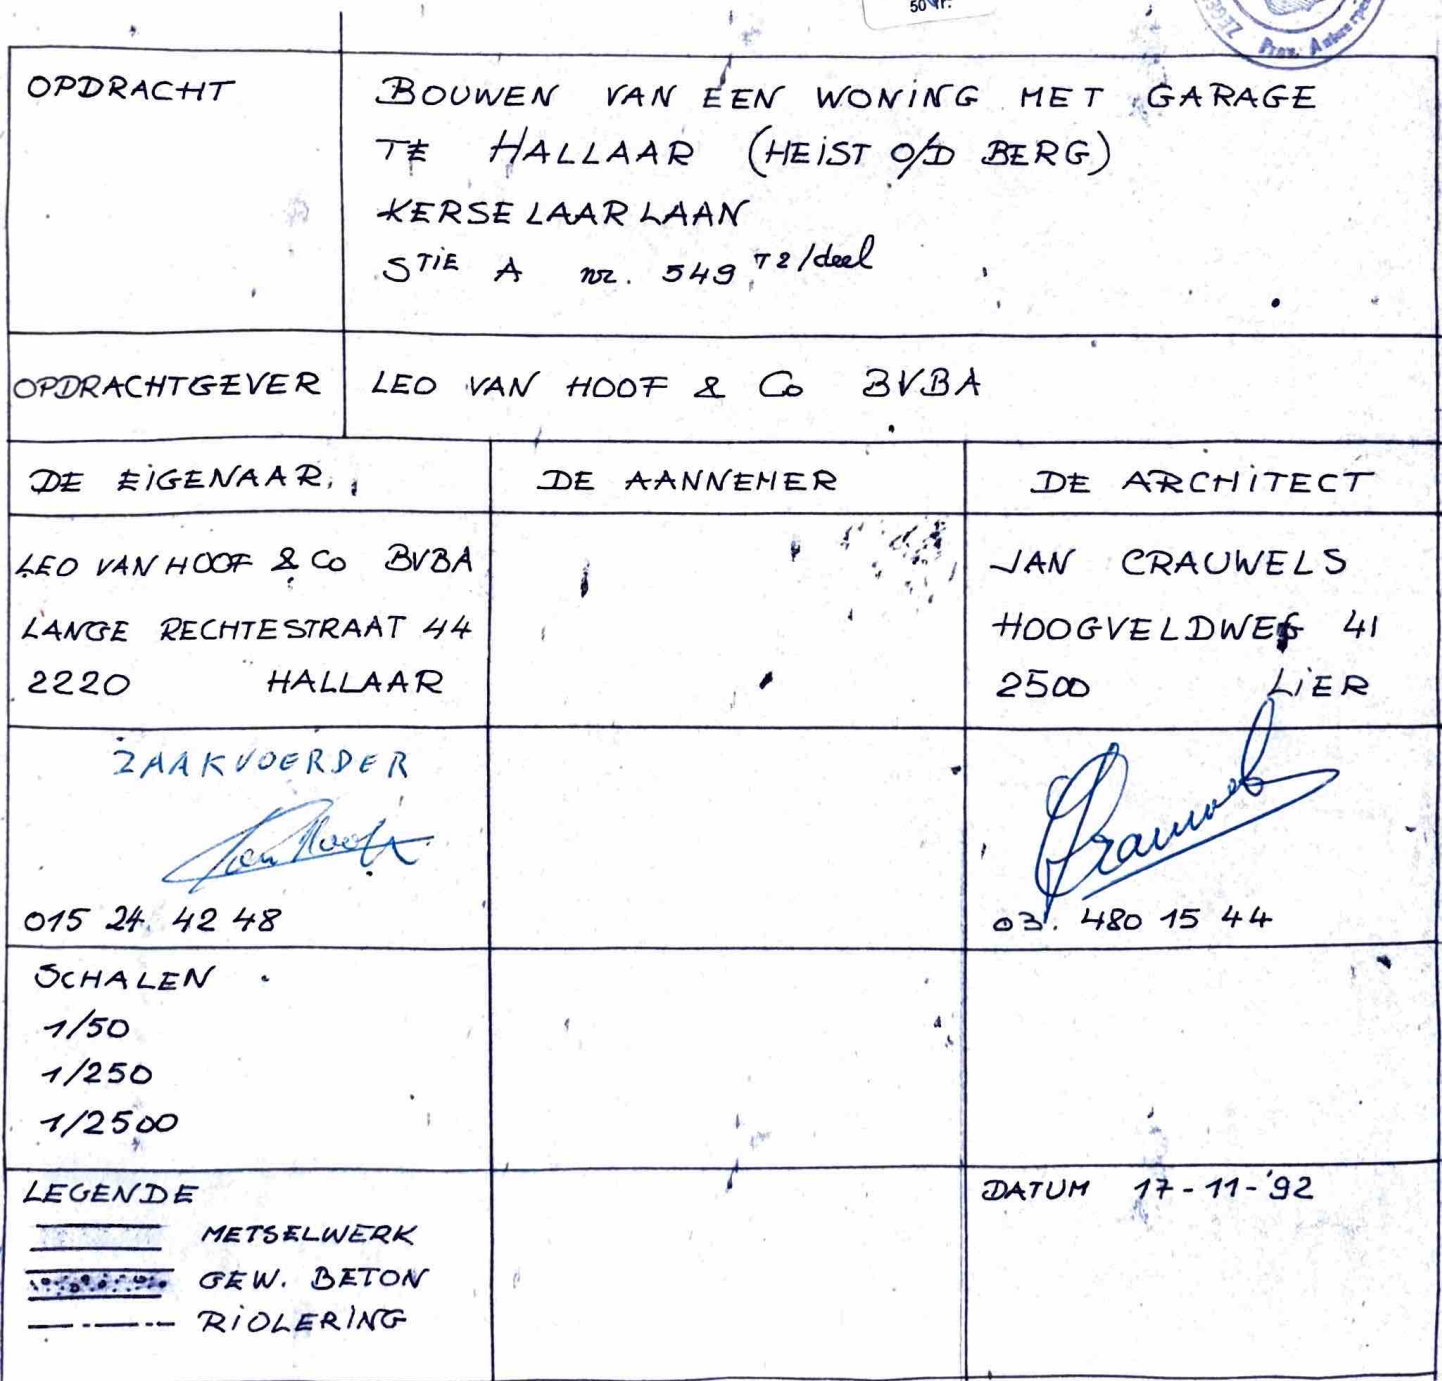 50 fr.
Prov. Antwerpen
OPDRACHT
BOUWEN VAN EEN WONING MET GARAGE
TE HALLAAR (HEIST O/D BERG)
KERSELAARLAAN
STIE A nr. 549 T2/deel
OPDRACHTGEVER
LEO VAN HOOF & Co BVBA
DE EIGENAAR.
DE AANNEMER
DE ARCHITECT
LEO VAN HOOF & Co BVBA
LANGE RECHTESTRAAT 44
2220 HALLAAR
JAN CRAUWELS
HOOGVELDWEG 41
2500 LIER
ZAAKVOERDER
Van Hoof
Crauwels
015 24 42 48
03. 480 15 44
SCHALEN
1/50
1/250
1/2500
LEGENDE
METSELWERK
GEW. BETON
RIOLERING
DATUM 17-11-'92